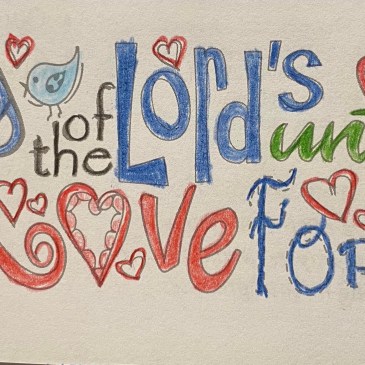 of the Lord's un
Love For